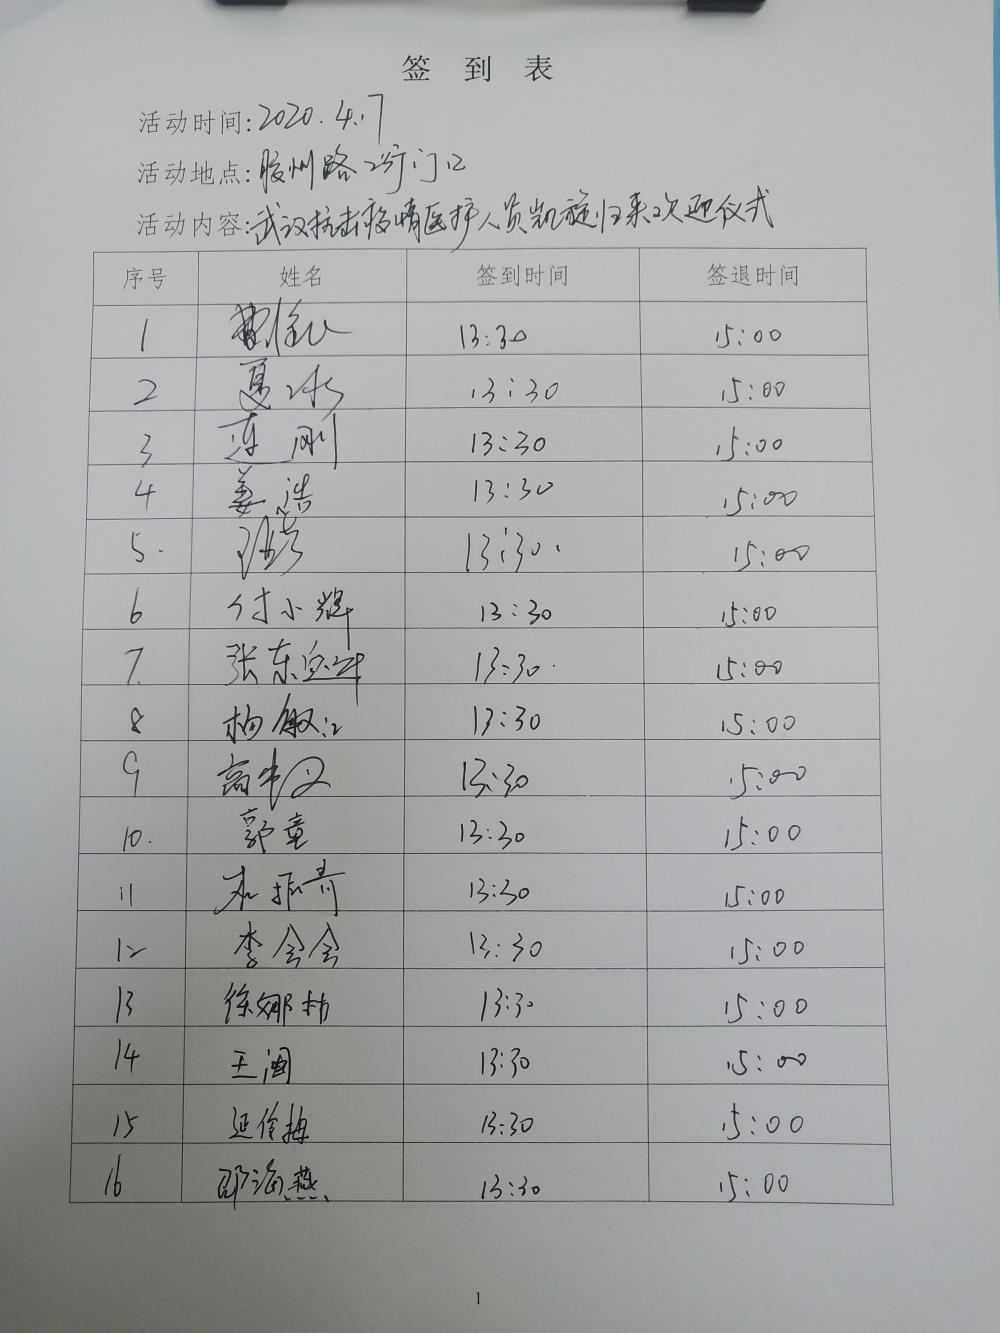 签到表
活动时间:2020.4.7
活动地点:胶州路 门口
活动内容:武汉抗击疫情医护人员凯旋归来欢迎仪式
序号 姓名 签到时间 签退时间
1 13:30 15:00
2 夏冰 13:30 15:00
3 连刚 13:30 15:00
4 姜浩 13:30 15:00
5. 13:30. 15:00
6 付小辉 13:30 15:00
7. 张东 13:30. 15:00
8 杨敏江 13:30 15:00
9 高 13:30 15:00
10. 郭童 13:30 15:00
11 振青 13:30 15:00
12 李会会 13:30 15:00
13 徐娜 13:30 15:00
14 王 13:30 15:00
15 延伶梅 13:30 15:00
16 邵海燕 13:30 15:00
1